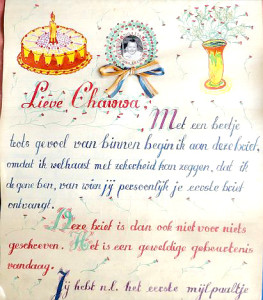 Lieve Chaiwa,
Met een beetje
trots gevoel van binnen begin ik aan deze brief,
omdat ik welhaast met zekerheid kan zeggen, dat ik
degene ben, van wien jij persoonlijk je eerste brief
ontvangt.
Deze brief is dan ook niet voor niets
geschreven. Het is een geweldige gebeurtenis
vandaag.
Jij hebt n.l. het eerste mijlpaaltje